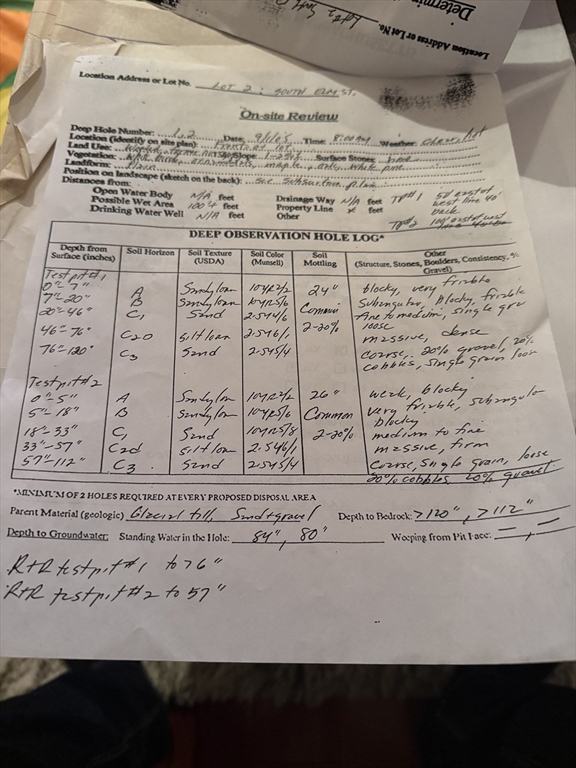 Determin
Location Address or Lot No.
Location Address or Lot No. LOT 2: SOUTH ELM ST.
On-site Review
Deep Hole Number: 1,2 Date: Time: 8:00 AM Weather: Clear, hot
Location (identify on site plan): Front of lot
Land Use: Slope: Surface Stones:
Vegetation: maple, white pine
Landform:
Position on landscape (sketch on the back): See subsurface plan
Distances from:
Open Water Body N/A feet Drainage Way N/A feet TP#1 50' east of
Possible Wet Area 100+ feet Property Line feet west line 40'
Drinking Water Well N/A feet Other back
TP#2
DEEP OBSERVATION HOLE LOG*
Depth from Surface (inches) Soil Horizon Soil Texture (USDA) Soil Color (Munsell) Soil Mottling Other (Structure, Stones, Boulders, Consistency, % Gravel)
Test pit #1
0"-7" A Sandy loam 10YR2/2 24" blocky, very friable
7"-20" B Sandy loam 10YR5/6 Common Subangular, Blocky, friable
20"-46" C1 Sand 2.5Y4/6 2-20% fine to medium, single gr loose
46"-76" C2D silt loam 2.5Y6/1 massive, dense
76"-120" C3 Sand 2.5Y5/4 coarse, 20% gravel, 20% cobbles, single grain loose
Test pit #2
0"-5" A Sandy loam 10YR2/2 26" weak, blocky
5"-18" B Sandy loam 10YR5/6 Common very friable, subangular blocky
18"-33" C1 Sand 10YR5/8 2-20% medium to fine
33"-57" C2d silt loam 2.5Y6/1 massive, firm
57"-112" C3 Sand 2.5Y5/4 Coarse, single grain, loose
20% cobbles 20% gravel
*MINIMUM OF 2 HOLES REQUIRED AT EVERY PROPOSED DISPOSAL AREA
Parent Material (geologic) Glacial till, Sand+gravel Depth to Bedrock: >120", >112"
Depth to Groundwater: Standing Water in the Hole: 84", 80" Weeping from Pit Face: —, —
R+R test pit #1 to 76"
R+R test pit #2 to 57"